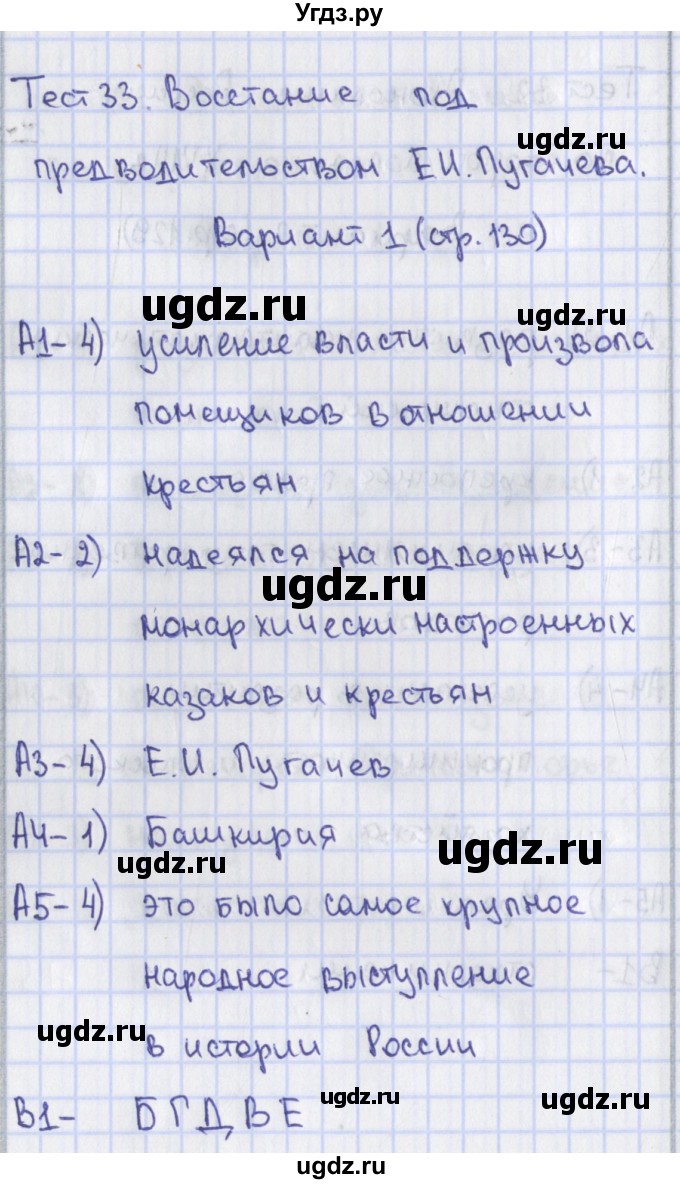 Угдз.ру
Тест 33. Восстание под
ugdz.ru
предводительством Е.И. Пугачева.
Вариант 1 (стр. 130)
ugdz.ru ugdz.ru
А1- 4) усиление власти и произвола
помещиков в отношении
крестьян
А2- 2) надеялся на поддержку
ugdz.ru
монархически настроенных
казаков и крестьян
А3- 4) Е.И. Пугачев
А4- 1) Башкирия
ugdz.ru ugdz.ru
А5- 4) это было самое крупное
народное выступление
ugdz.ru ugdz.ru
в истории России
В1- Б Г Д В Е
ugdz.ru ugdz.ru
ugdz.ru